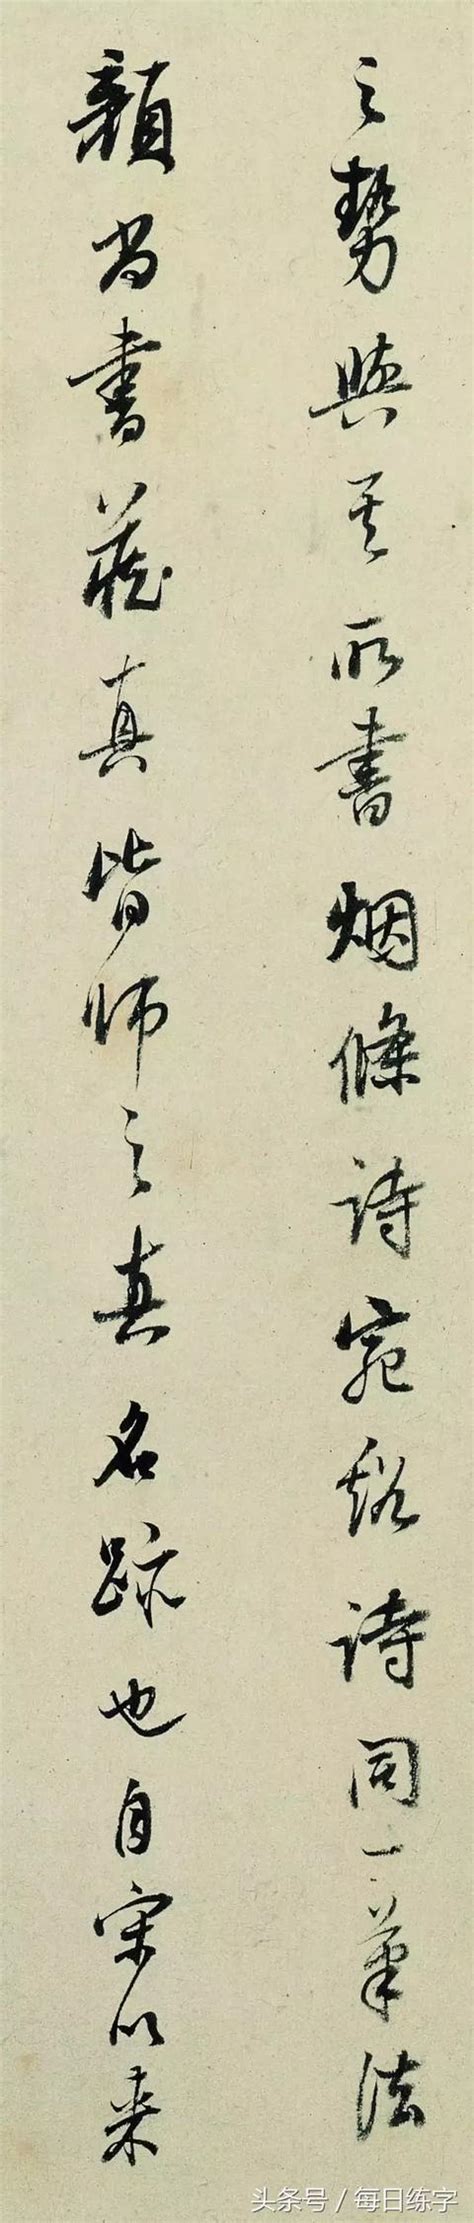 之势與其所書烟條詩宛谿詩同一筆法
顏尚書藏真皆師之真名跡也自宋以来
头条号／每日练字